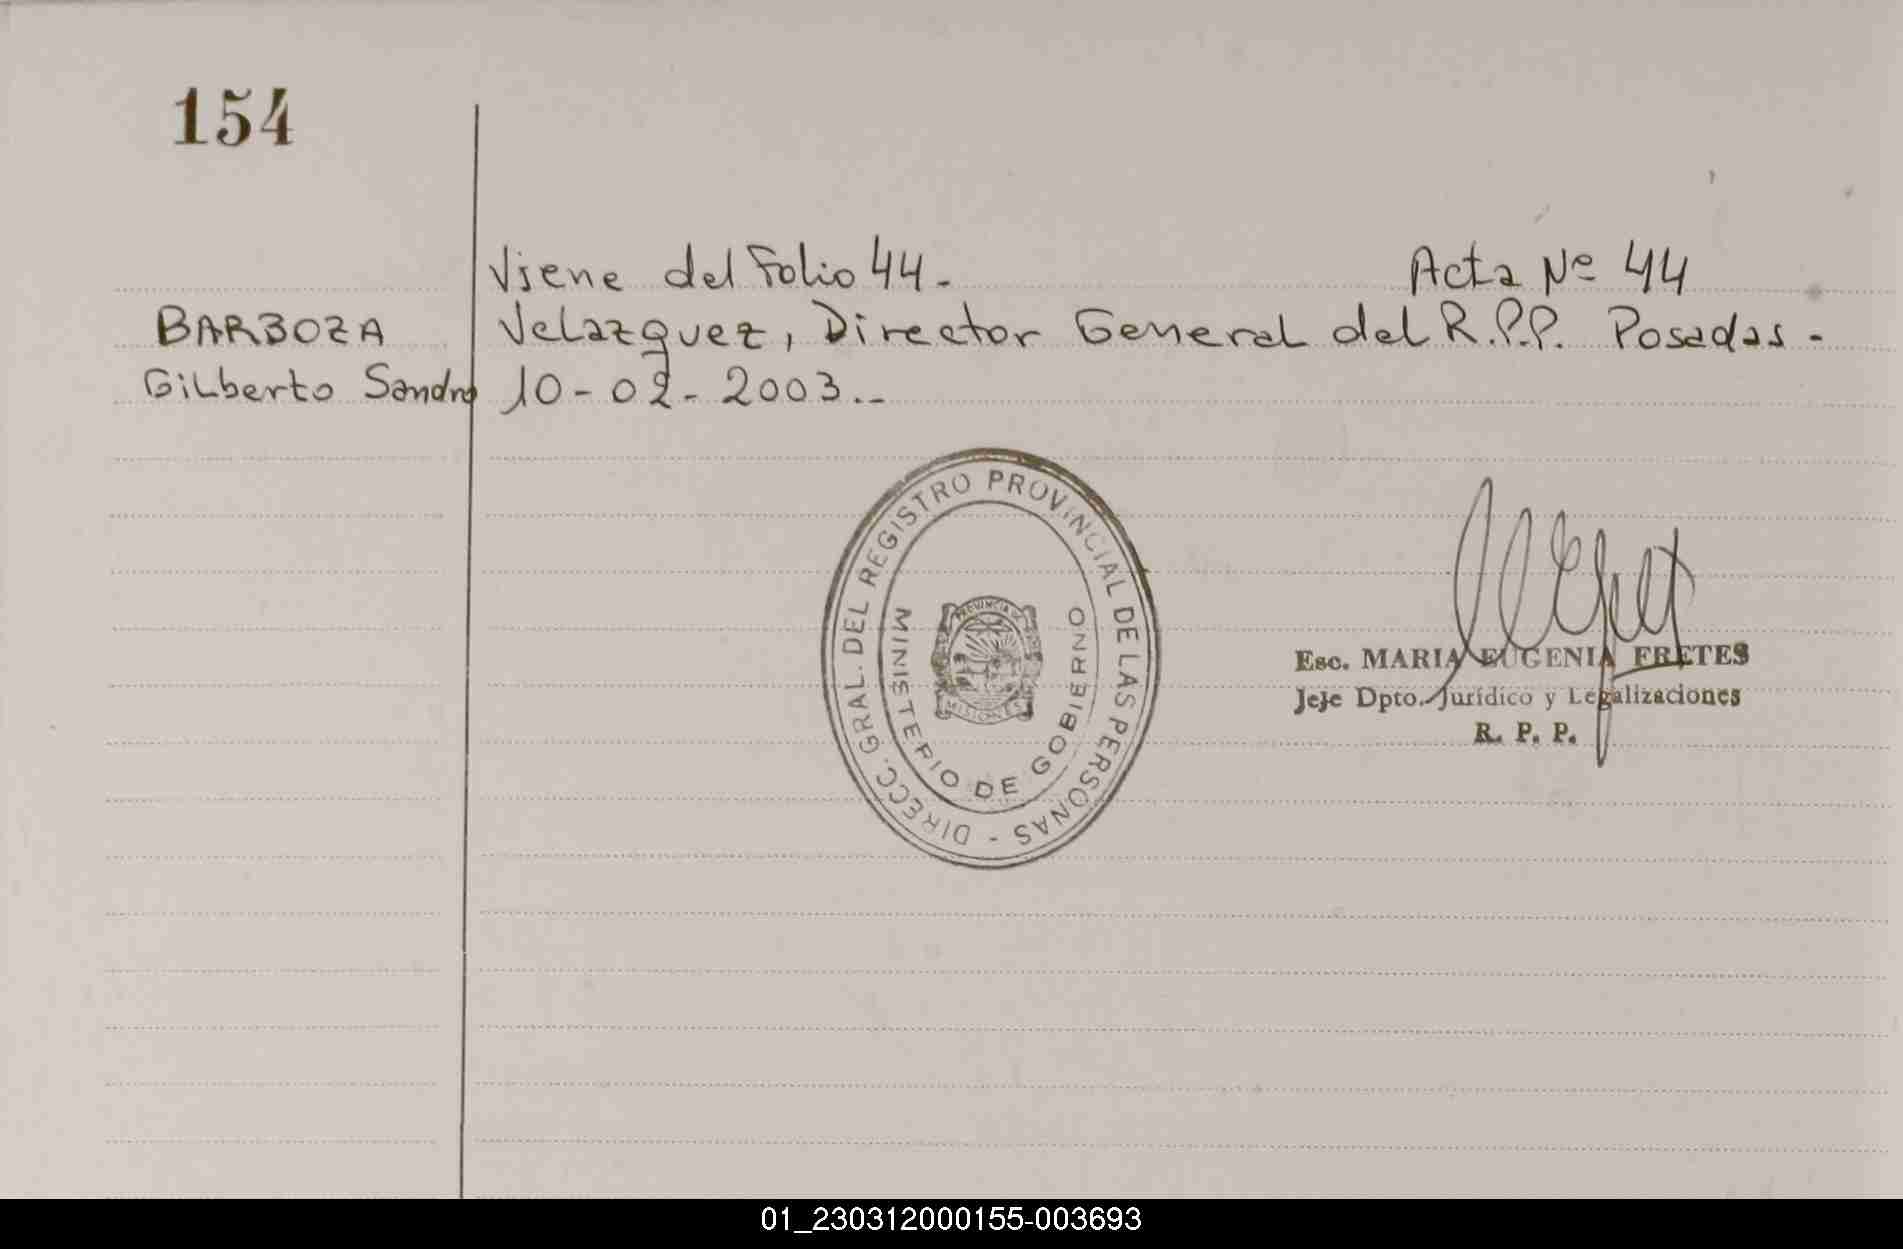 154
Viene del Folio 44.-
Acta Nº 44
BARBOZA
Gilberto Sandro
Velazquez, Director General del R.P.P. Posadas.-
10-02-2003.--
DIRECC. GRAL. DEL REGISTRO PROVINCIAL DE LAS PERSONAS -
MINISTERIO DE GOBIERNO
PROVINCIA DE
MISIONES
Esc. MARIA EUGENIA FRETES
Jefe Dpto. Jurídico y Legalizaciones
R. P. P.
01_230312000155-003693